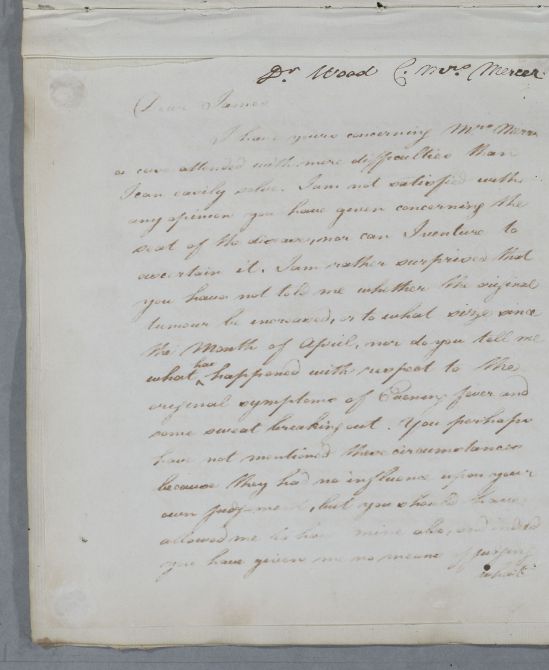 Dr Wood C. Mrs. Mercer
Dear James
I have yours concerning Mrs Mercer
a case attended with more difficulties than
I can easily solve. I am not satisfied with
any opinion you have given concerning the
seat of the disease, nor can I venture to
ascertain it. I am rather surprised that
you have not told me whether the original
tumour be increased, or to what size since
the Month of April, nor do you tell me
what has happened with respect to the
original symptoms of Evening fever and
some sweat breaking out. You perhaps
have not mentioned these circumstances
because they had no influence upon your
own judgment, but you should have
allowed me to have mine also, and indeed
you have given me no means of judging
what